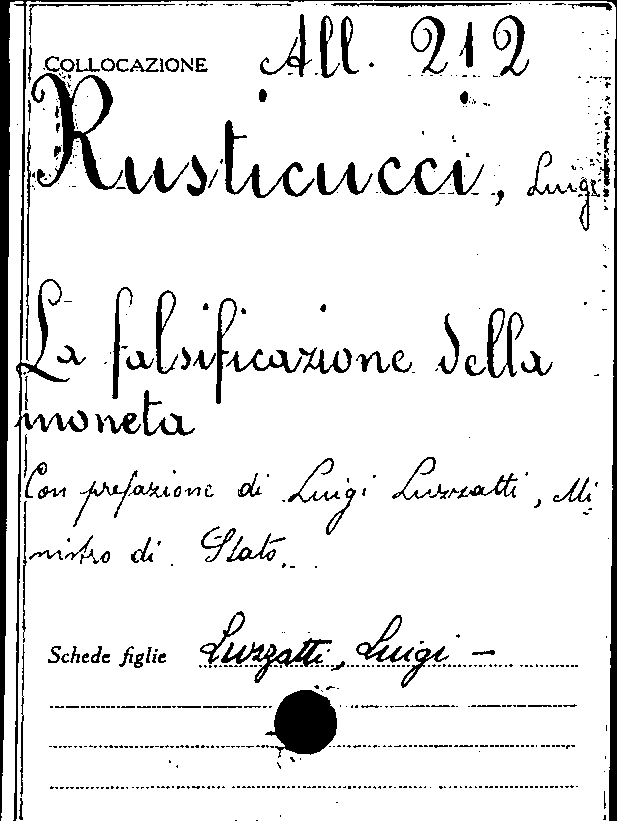 COLLOCAZIONE All. 212
Rusticucci, Luigi
La falsificazione della
moneta
Con prefazione di Luigi Luzzatti, Mi
nistro di Stato.
Schede figlie Luzzatti, Luigi –